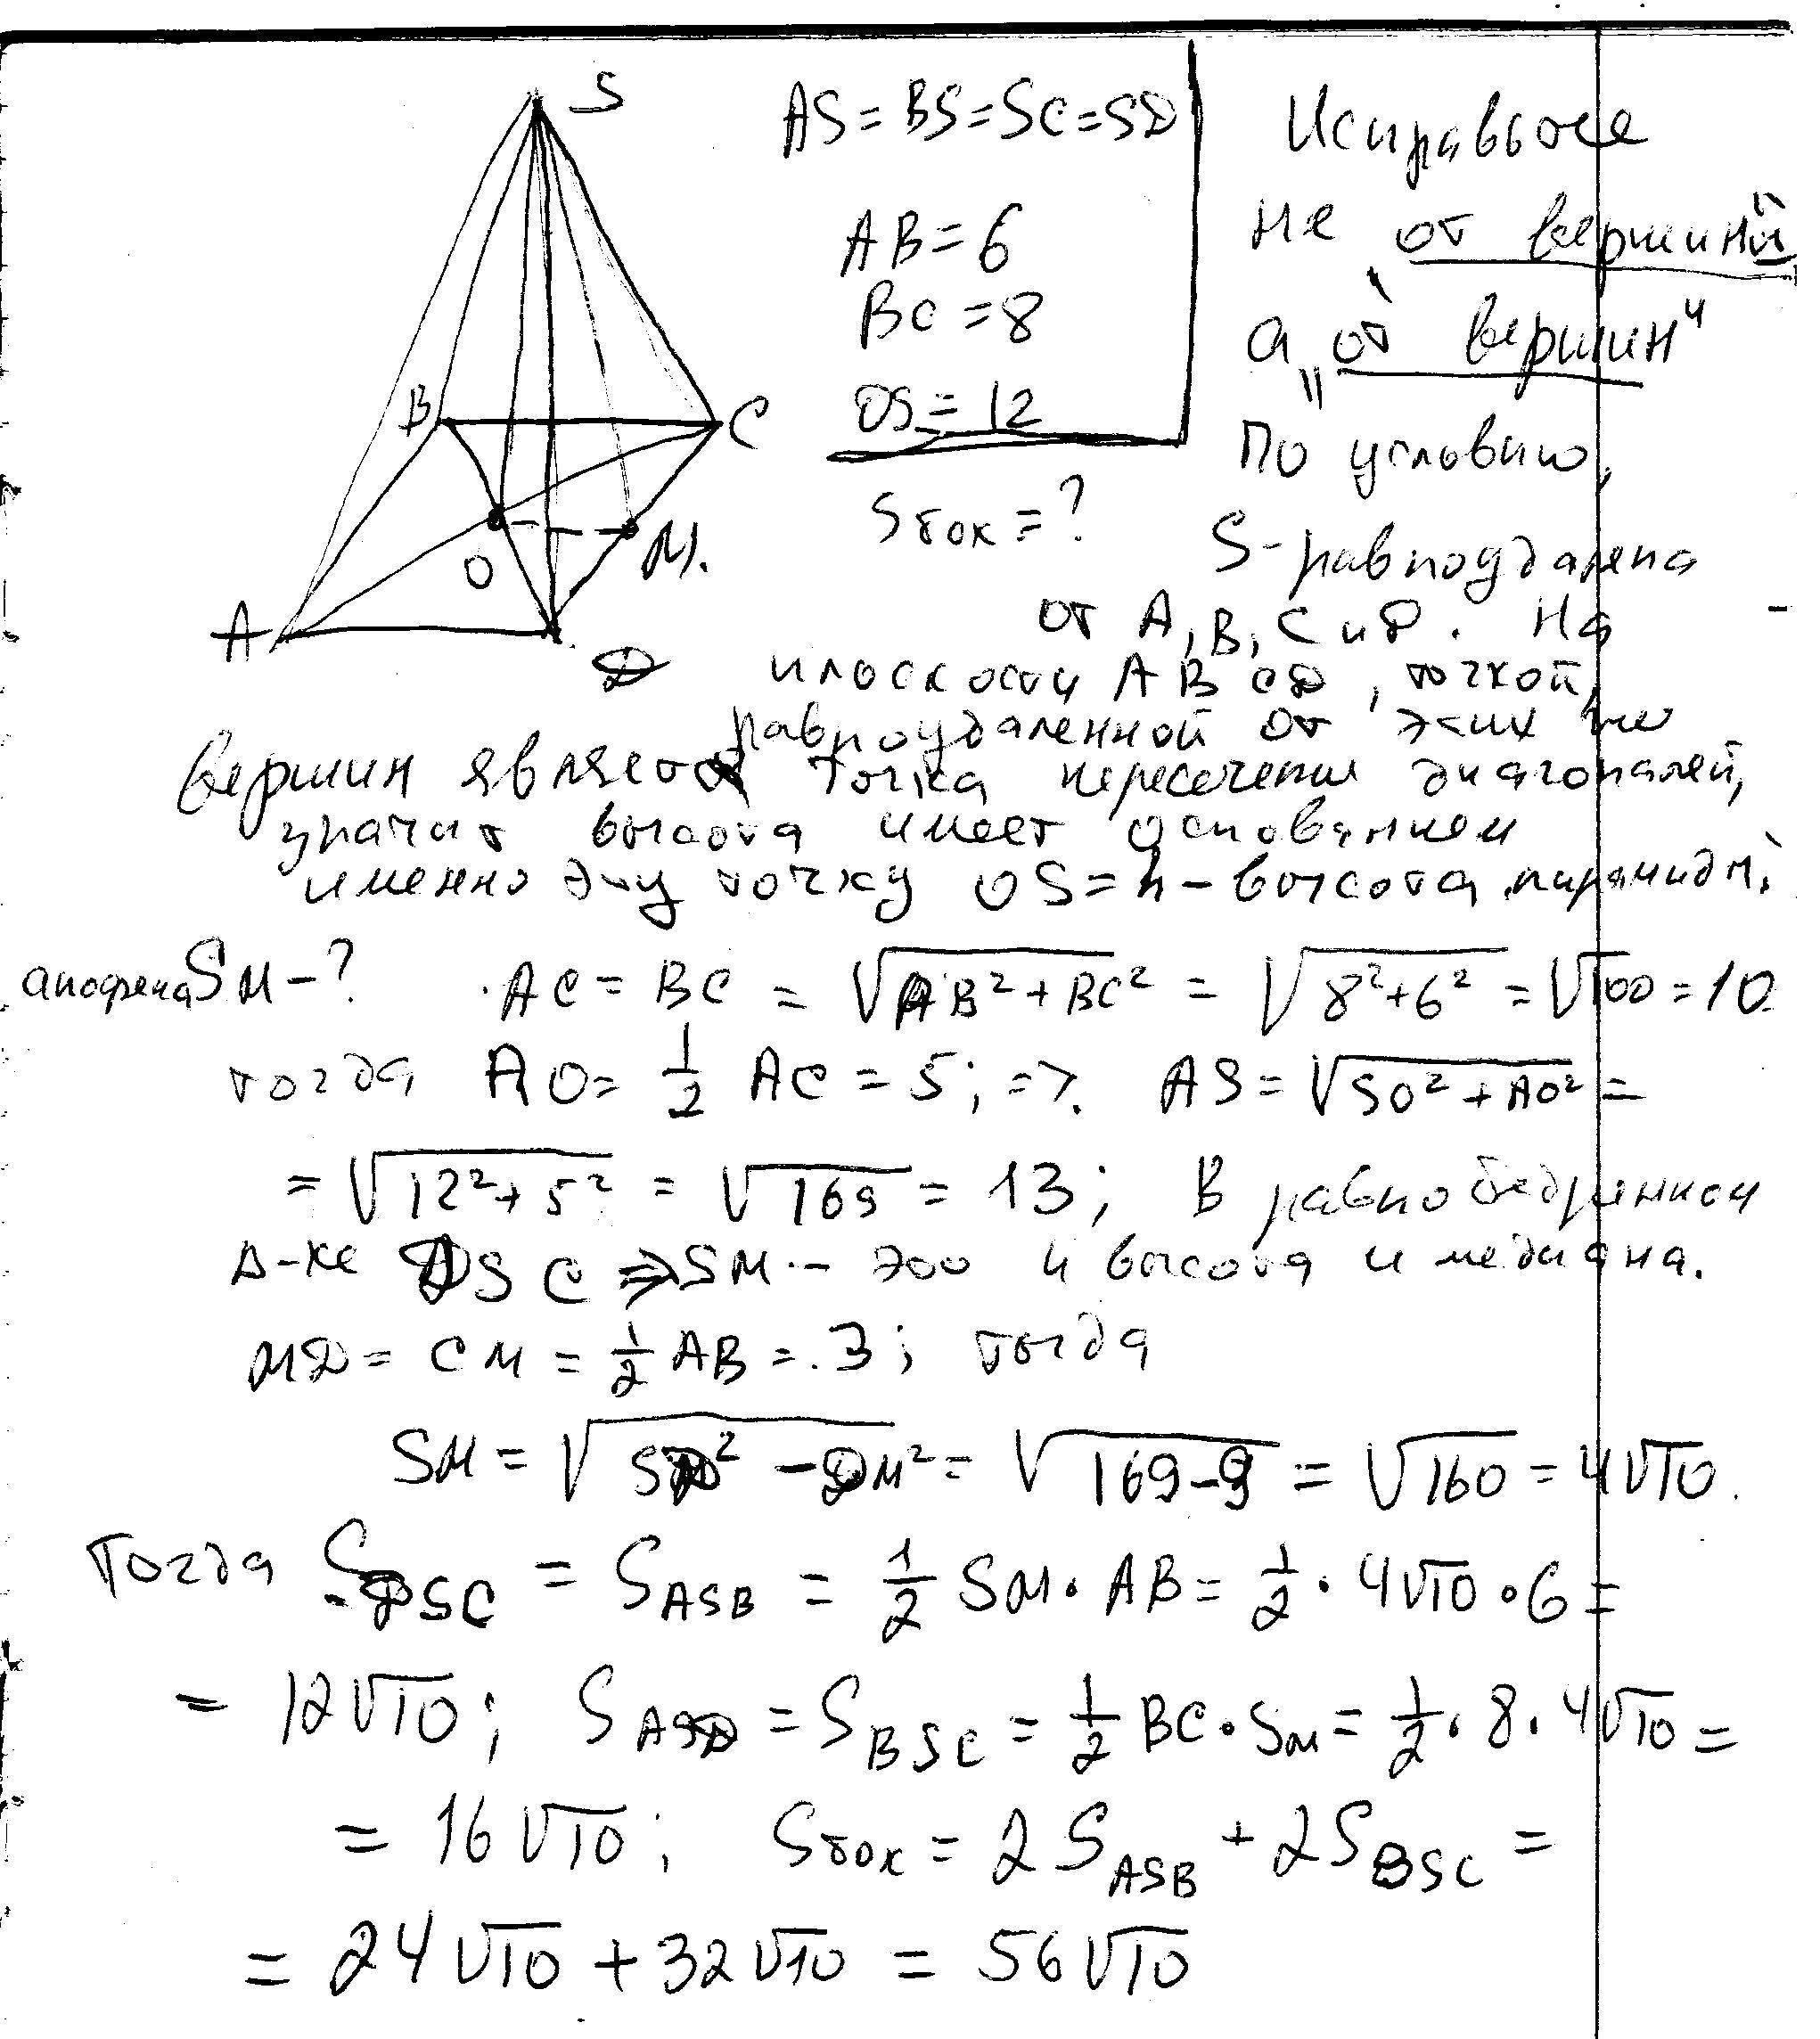 S
AS = BS = SC = SD
Исправьте
AB = 6
не от вершины"
BC = 8
а "от вершин"
B
C
OS = 12
По условию,
Sбок = ?
S - равноудалена
O
M.
от A, B, C и D. На
A
D
плоскости ABCD, точкой,
равноудаленной от этих же
вершин является точка пересечения диагоналей,
значит высота имеет основанием
именно эту точку OS = h - высота пирамиды.
апофема SM - ? AC = BC = √AB² + BC² = √8² + 6² = √100 = 10
тогда AO = 1/2 AC = 5; => AS = √SO² + AO² =
= √12² + 5² = √169 = 13; В равнобедренном
Δ-ке DSC => SM - это и высота и медиана.
MD = CM = 1/2 AB = 3; тогда
SM = √SD² - DM² = √169 - 9 = √160 = 4√10.
Тогда S DSC = S ASB = 1/2 SM · AB = 1/2 · 4√10 · 6 =
= 12√10; S ASD = S BSC = 1/2 BC · SM = 1/2 · 8 · 4√10 =
= 16√10; Sбок = 2 S ASB + 2 S BSC =
= 24√10 + 32√10 = 56√10